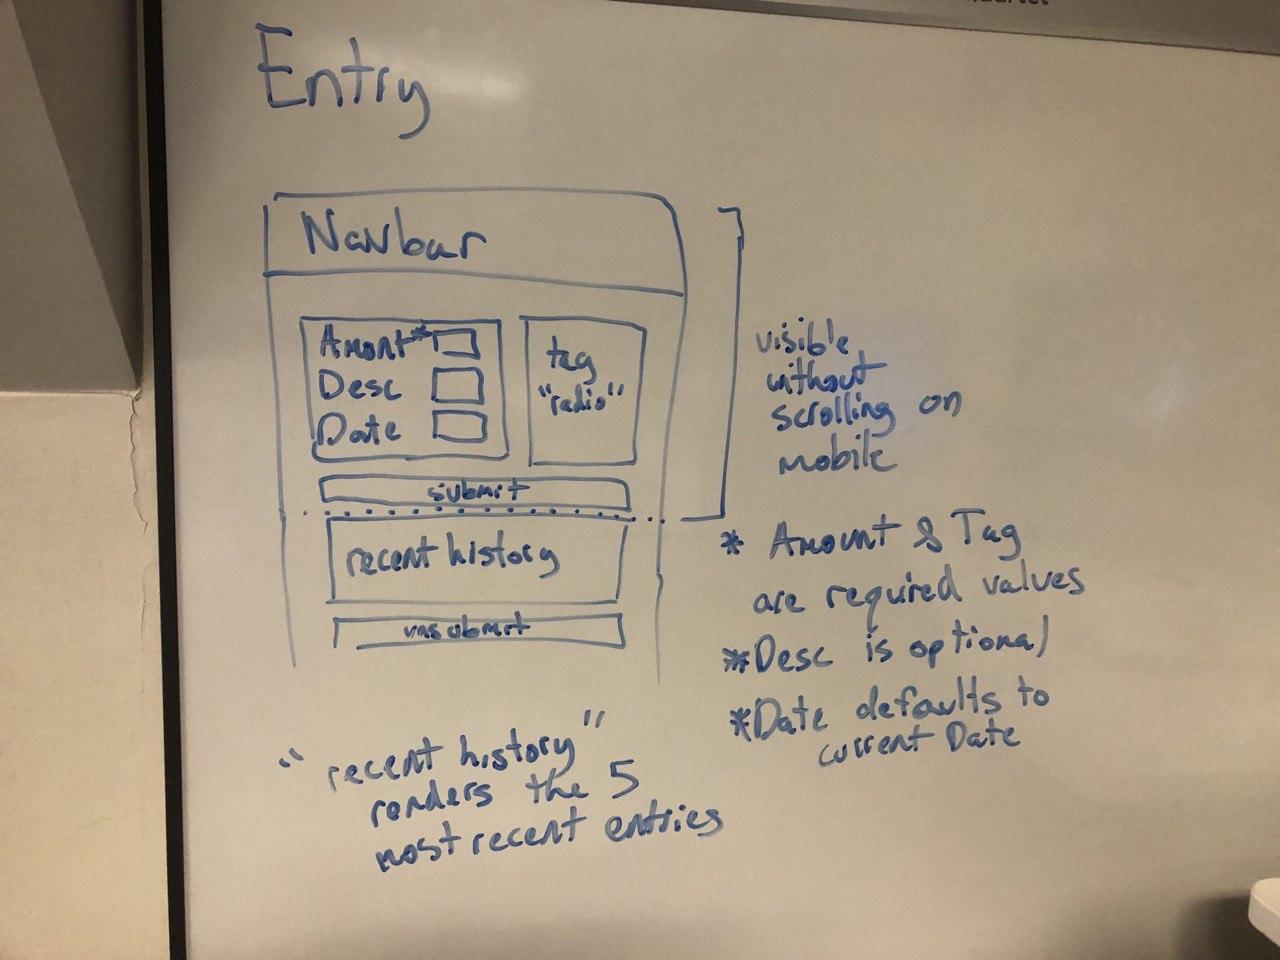 Entry
Navbar
Amont*
Desc
Date
tag
"radio"
submit
recent history
unsubmit
visible
without
scrolling on
mobile
* Amount & Tag
are required values
*Desc is optional
*Date defaults to
current Date
"recent history"
renders the 5
most recent entries